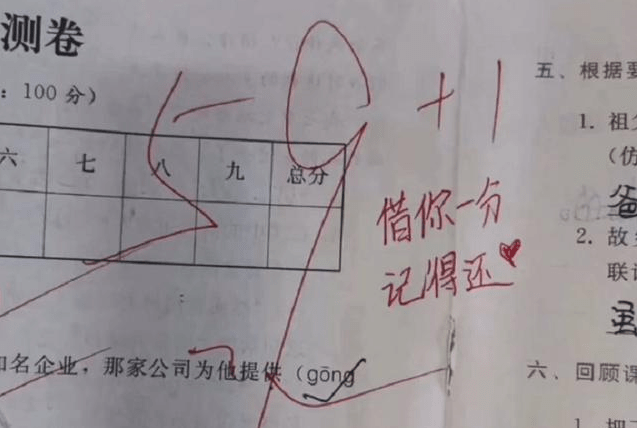 测卷
：100 分）
六 七 八 九 总分
59 +1
借你一分
记得还
名企业，那家公司为他提供（gōng
五、根据要
1. 祖
（仿
2. 故
联
六、回顾课